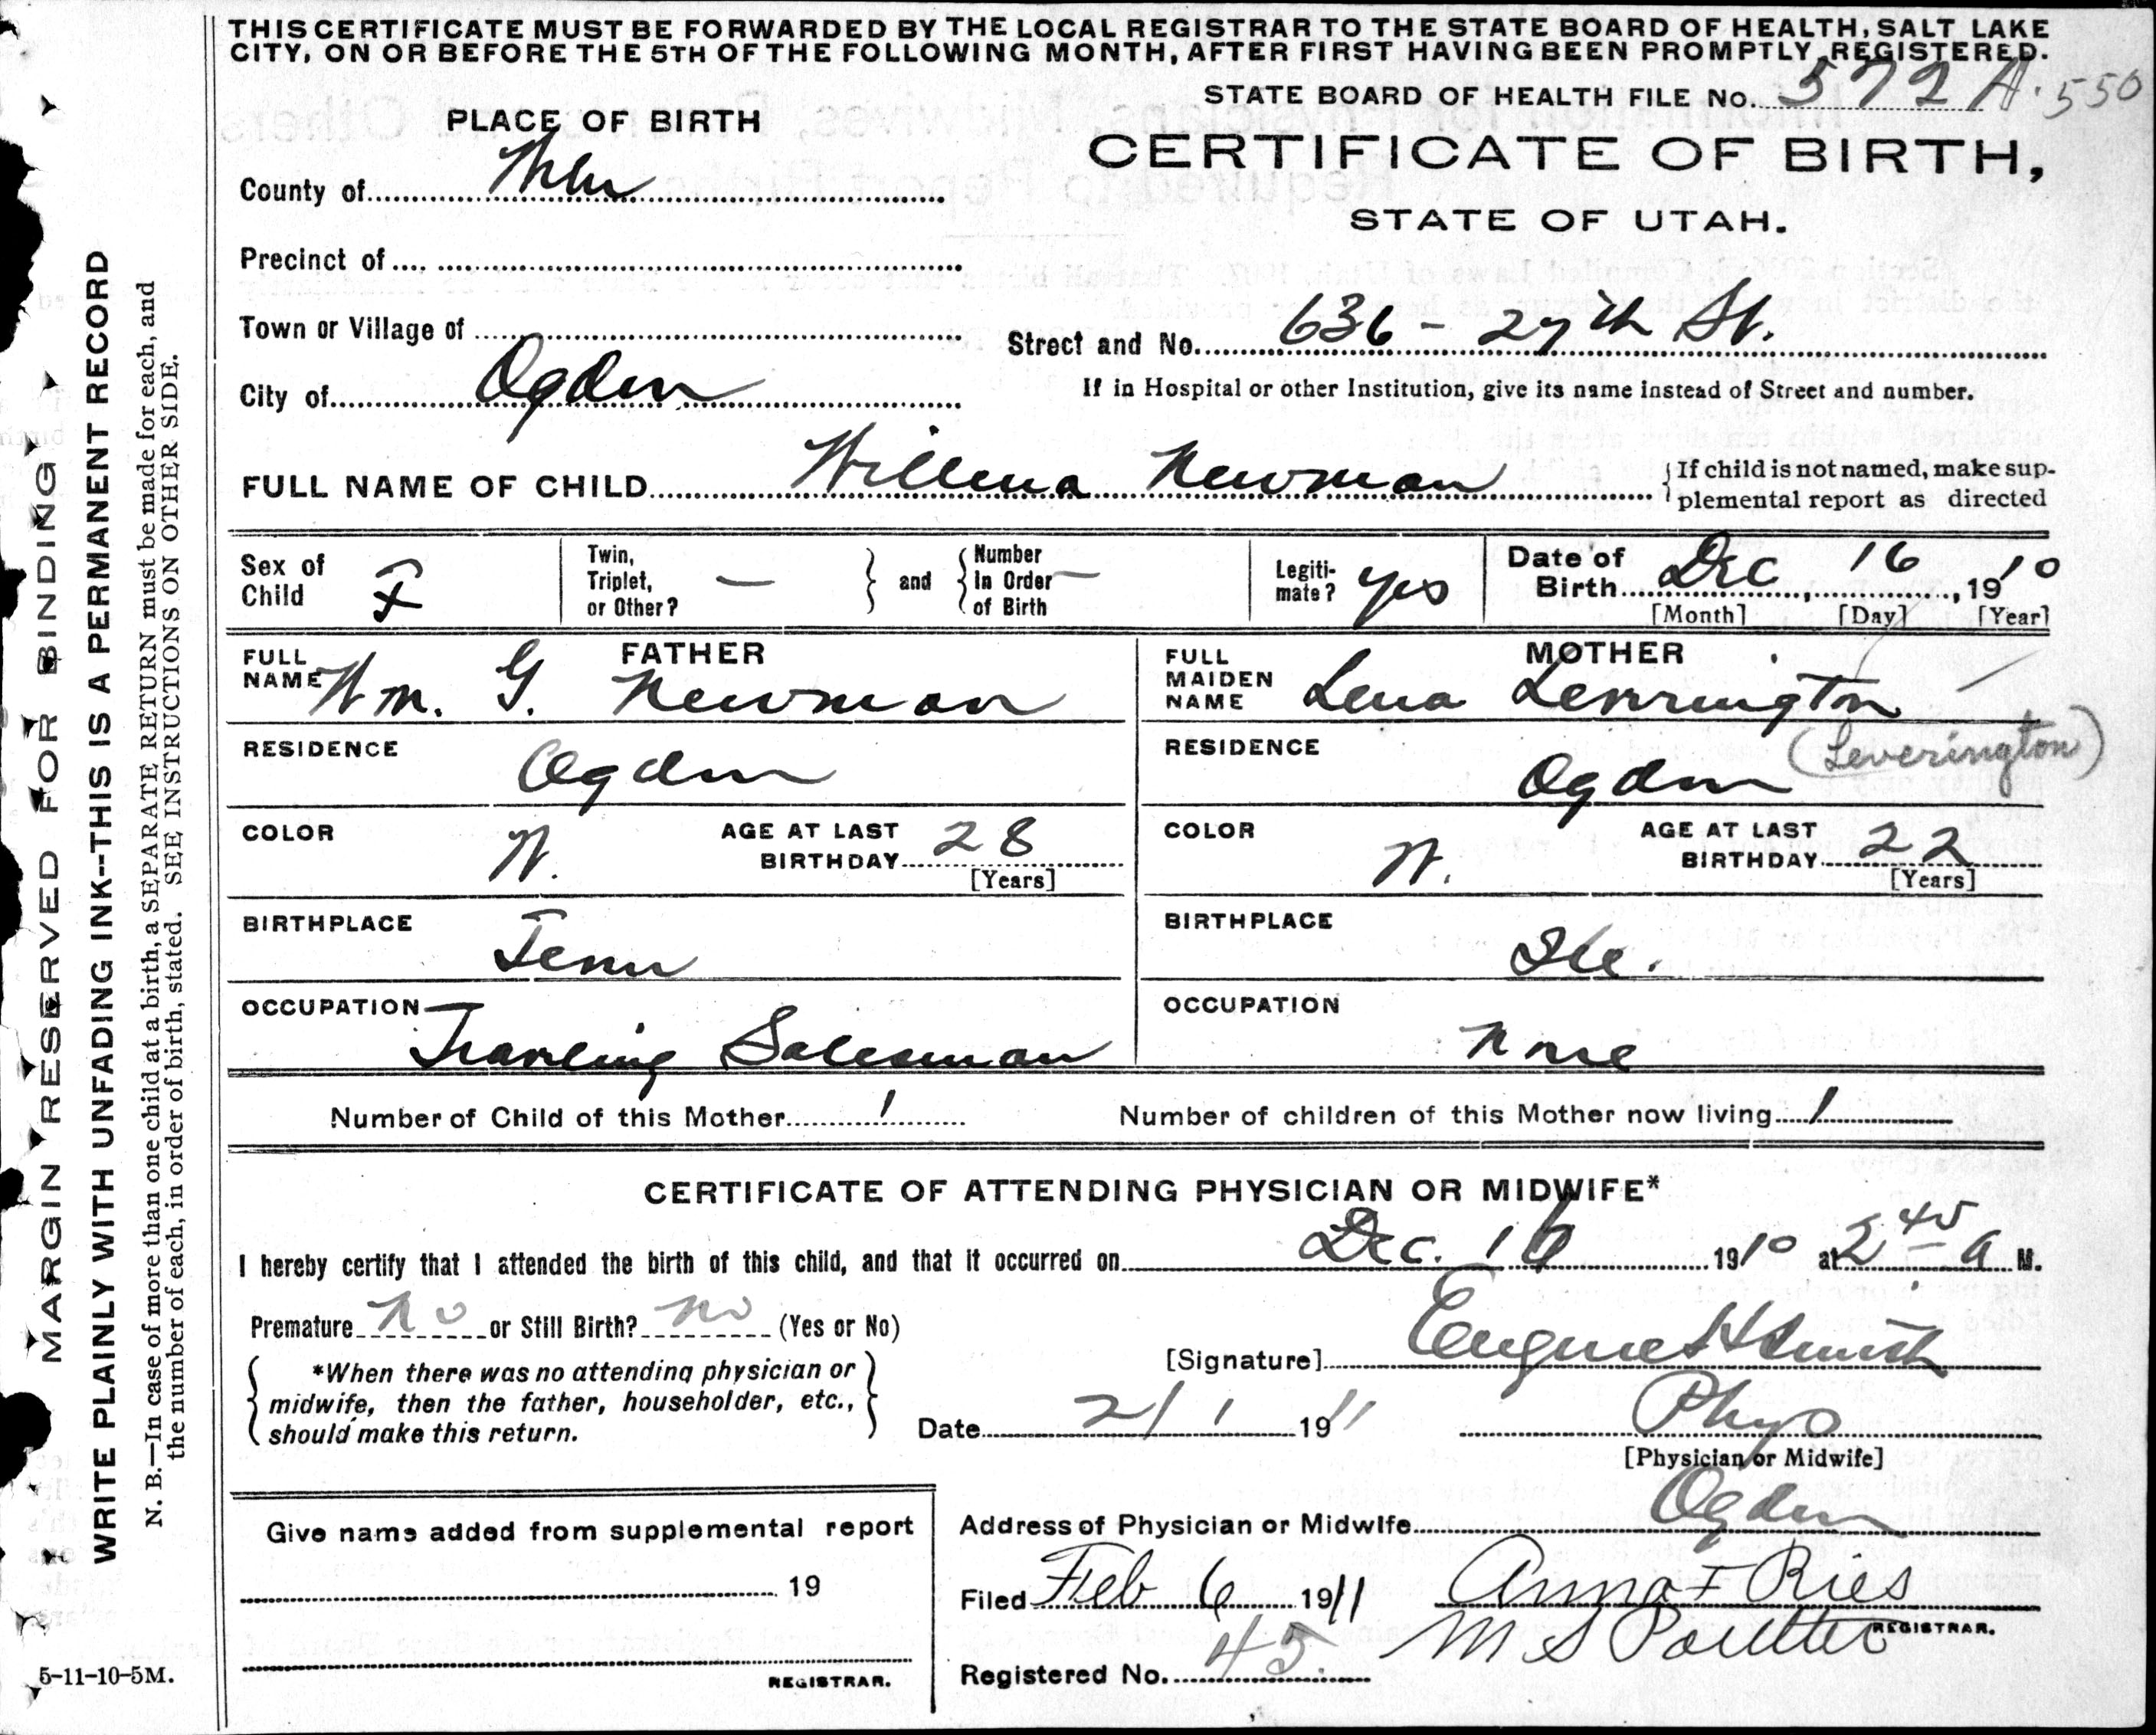 THIS CERTIFICATE MUST BE FORWARDED BY THE LOCAL REGISTRAR TO THE STATE BOARD OF HEALTH, SALT LAKE
CITY, ON OR BEFORE THE 5TH OF THE FOLLOWING MONTH, AFTER FIRST HAVING BEEN PROMPTLY REGISTERED.
STATE BOARD OF HEALTH FILE No. 572 A. 550
PLACE OF BIRTH
CERTIFICATE OF BIRTH,
STATE OF UTAH.
County of Weber
Precinct of
Town or Village of
Street and No. 636 - 27th St.
City of Ogden
If in Hospital or other Institution, give its name instead of Street and number.
FULL NAME OF CHILD Willena Newman
If child is not named, make sup-
plemental report as directed
Sex of Child F
Twin, Triplet, or Other? —
and
Number in Order of Birth —
Legiti-mate? yes
Date of Birth Dec 16, 1910
[Month] [Day] [Year]
FATHER
FULL NAME Wm. G. Newman
RESIDENCE Ogden
COLOR W.
AGE AT LAST BIRTHDAY 28
[Years]
BIRTHPLACE Tenn
OCCUPATION Traveling Salesman
MOTHER
FULL MAIDEN NAME Lena Leverington
(Leverington)
RESIDENCE Ogden
COLOR W.
AGE AT LAST BIRTHDAY 22
[Years]
BIRTHPLACE Ill.
OCCUPATION None
Number of Child of this Mother 1
Number of children of this Mother now living 1
CERTIFICATE OF ATTENDING PHYSICIAN OR MIDWIFE*
I hereby certify that I attended the birth of this child, and that it occurred on Dec. 16 1910 at 2 45 a M.
Premature No or Still Birth? no (Yes or No)
*When there was no attending physician or
midwife, then the father, householder, etc.,
should make this return.
[Signature] Eugene H Smith
Date 2/1 1911
Phys
[Physician or Midwife]
Give name added from supplemental report
19
REGISTRAR.
Address of Physician or Midwife Ogden
Filed Feb 6 1911
Anna F Ries
M S Poulter
REGISTRAR.
Registered No. 45.
MARGIN RESERVED FOR BINDING
WRITE PLAINLY WITH UNFADING INK--THIS IS A PERMANENT RECORD
N. B.—In case of more than one child at a birth, a SEPARATE RETURN must be made for each, and
the number of each, in order of birth, stated. SEE INSTRUCTIONS ON OTHER SIDE.
5-11-10-5M.